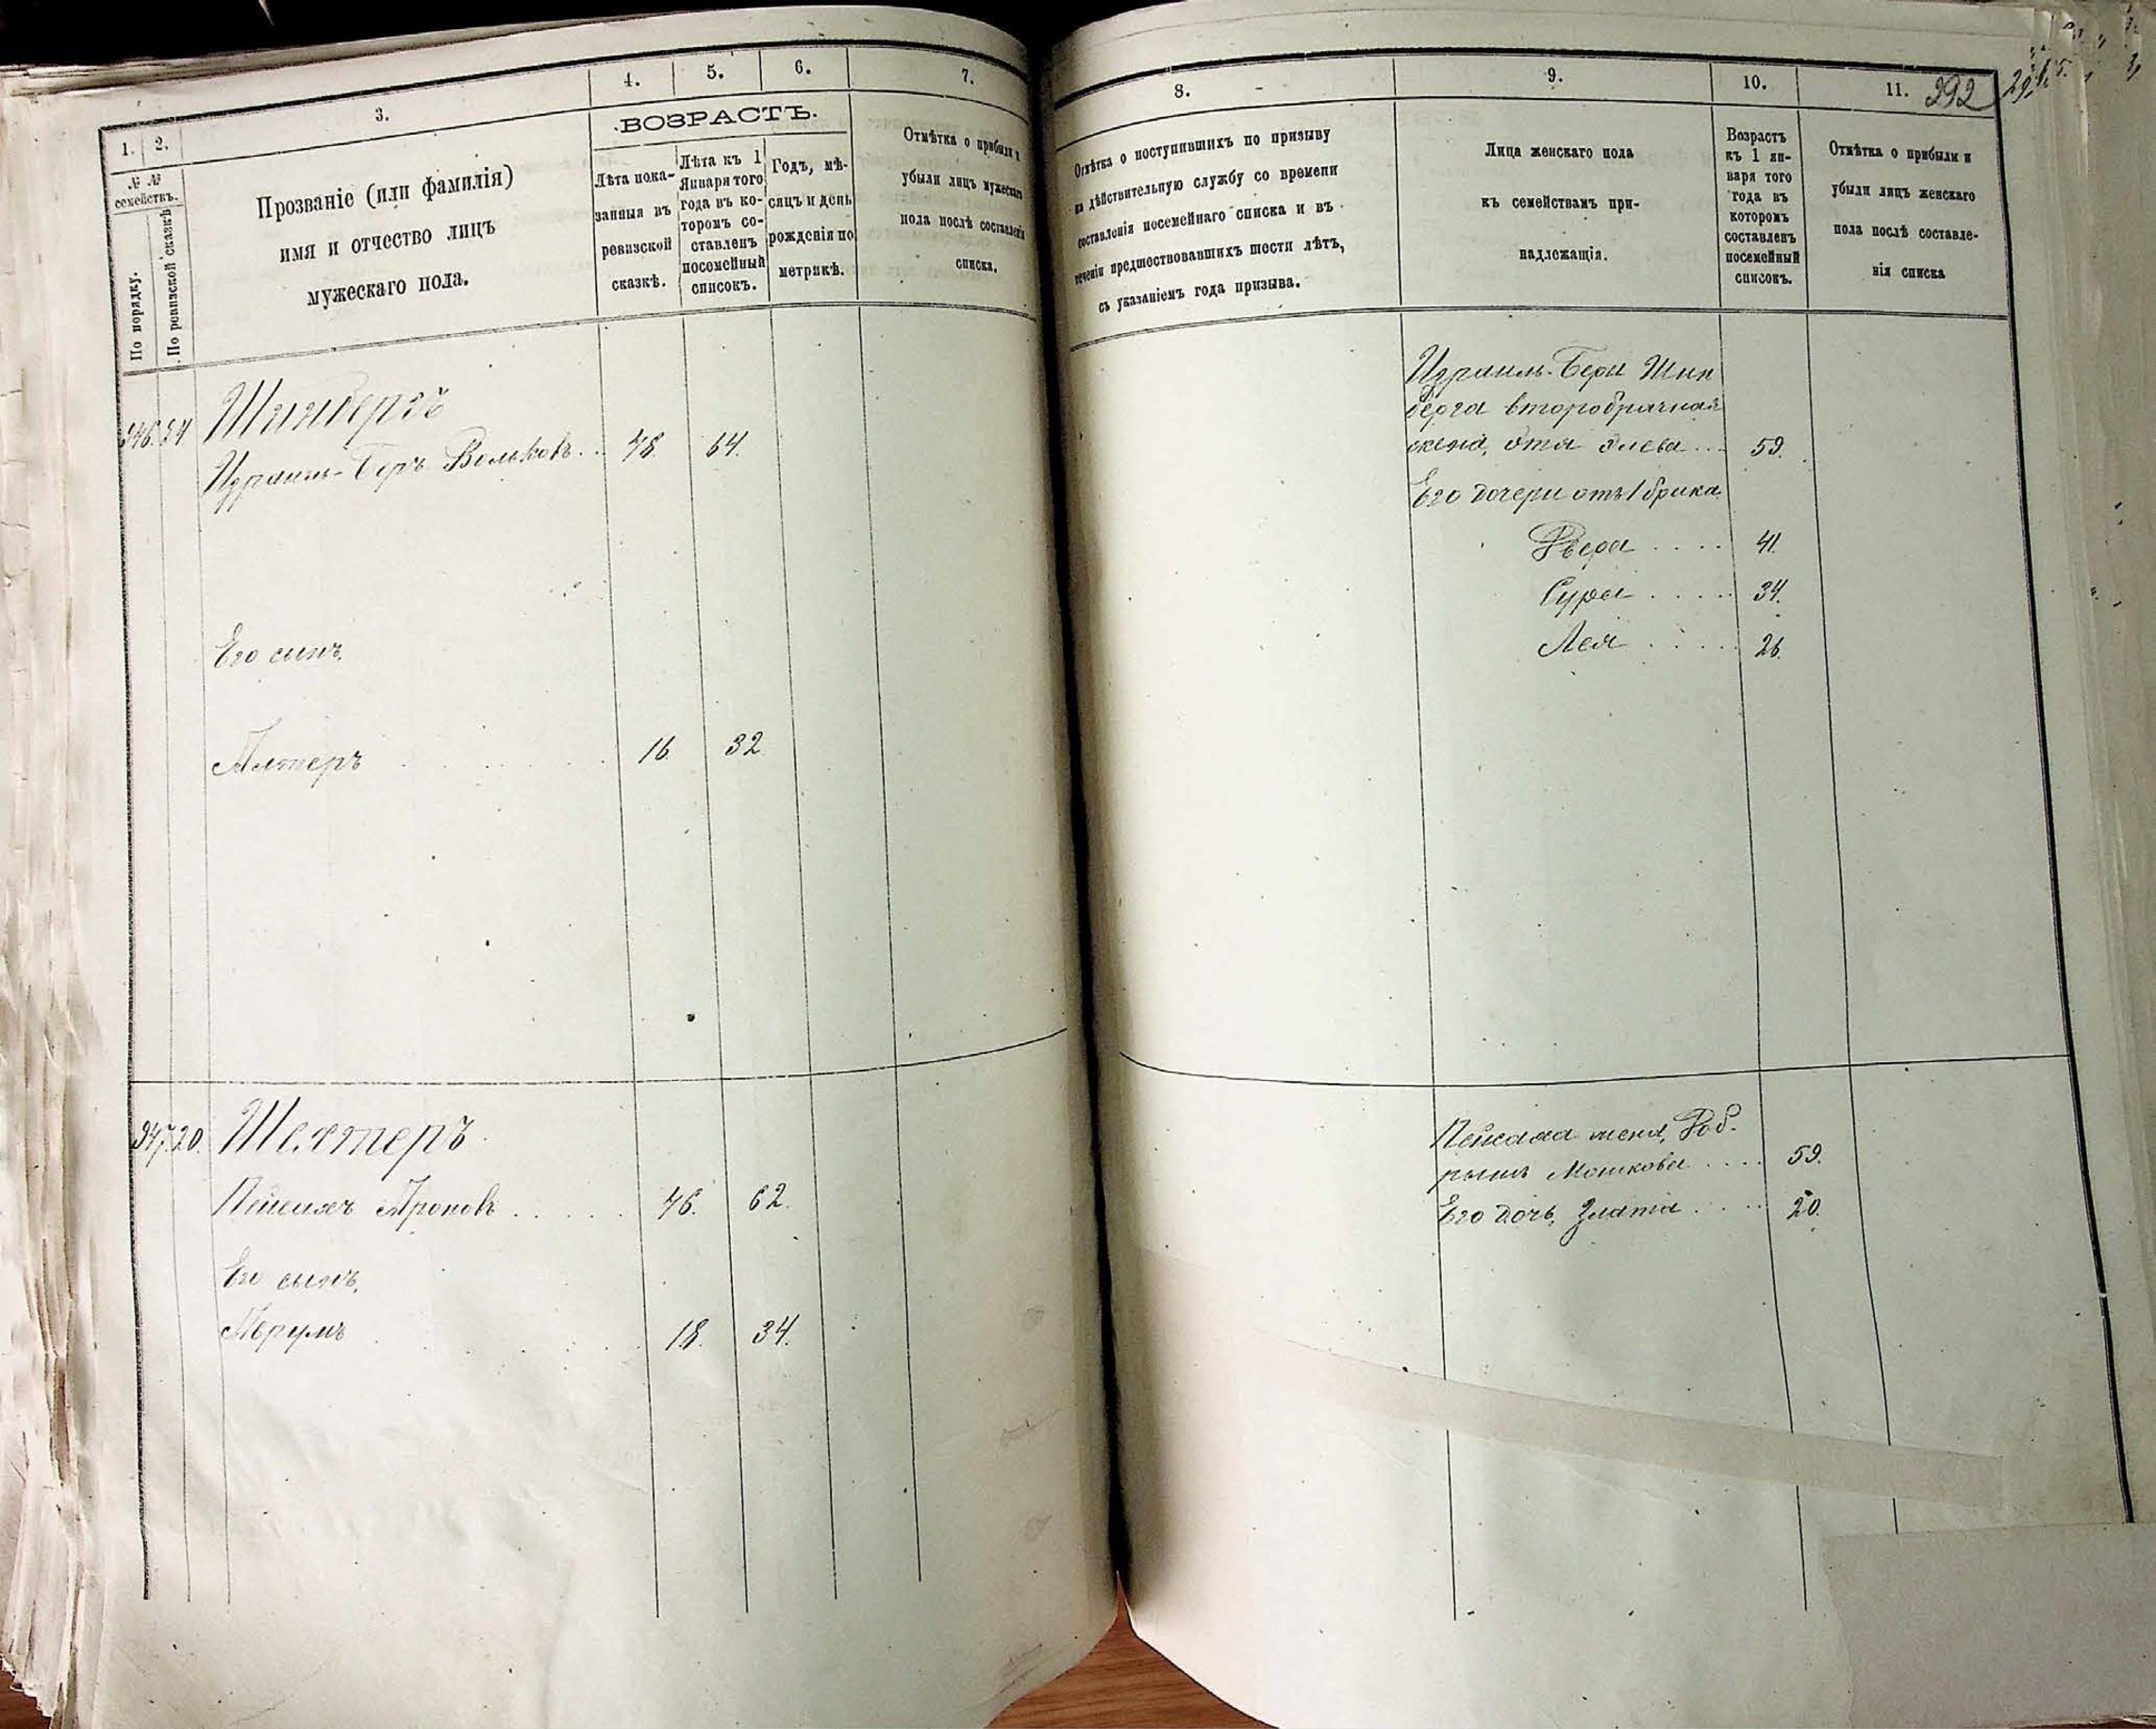 1. 2. 3. 4. 5. 6. 7.
№ № семействъ.
По порядку.
По ревизской сказкѣ.
Прозваніе (или фамилія)
имя и отчество лицъ
мужескаго пола.
ВОЗРАСТЪ.
Лѣта пока-
занныя въ
ревизской
сказкѣ.
Лѣта къ 1
Января того
года въ ко-
торомъ со-
ставленъ
посемейный
списокъ.
Годъ, мѣ-
сяцъ и день
рожденія по
метрикѣ.
Отмѣтка о прибыли и
убыли лицъ мужескаго
пола послѣ составленія
списка.
Шинбергъ
Израиль-Беръ Вольковъ 48. 64.
Его сынъ,
Алтеръ 16. 32.
947. 20. Шехтеръ
Пейсахъ Ароновъ 46. 62.
Его сынъ,
18. 34.
8. 9. 10. 11. 292
Отмѣтка о поступившихъ по призыву
на дѣйствительную службу со времени
составленія посемейнаго списка и въ
теченіи предшествовавшихъ шести лѣтъ,
съ указаніемъ года призыва.
Лица женскаго пола
къ семействамъ при-
надлежащія.
Возрастъ
къ 1 ян-
варя того
года въ
которомъ
составленъ
посемейный
списокъ.
Отмѣтка о прибыли и
убыли лицъ женскаго
пола послѣ составле-
нія списка
Израиль-Бера Шин
берга второбрачная
жена, 59.
Его дочери отъ 1 брака
41.
Сура 34.
Лея 26.
Пейсаха жена,
Мошкова 59.
Его дочь, Злата 20.